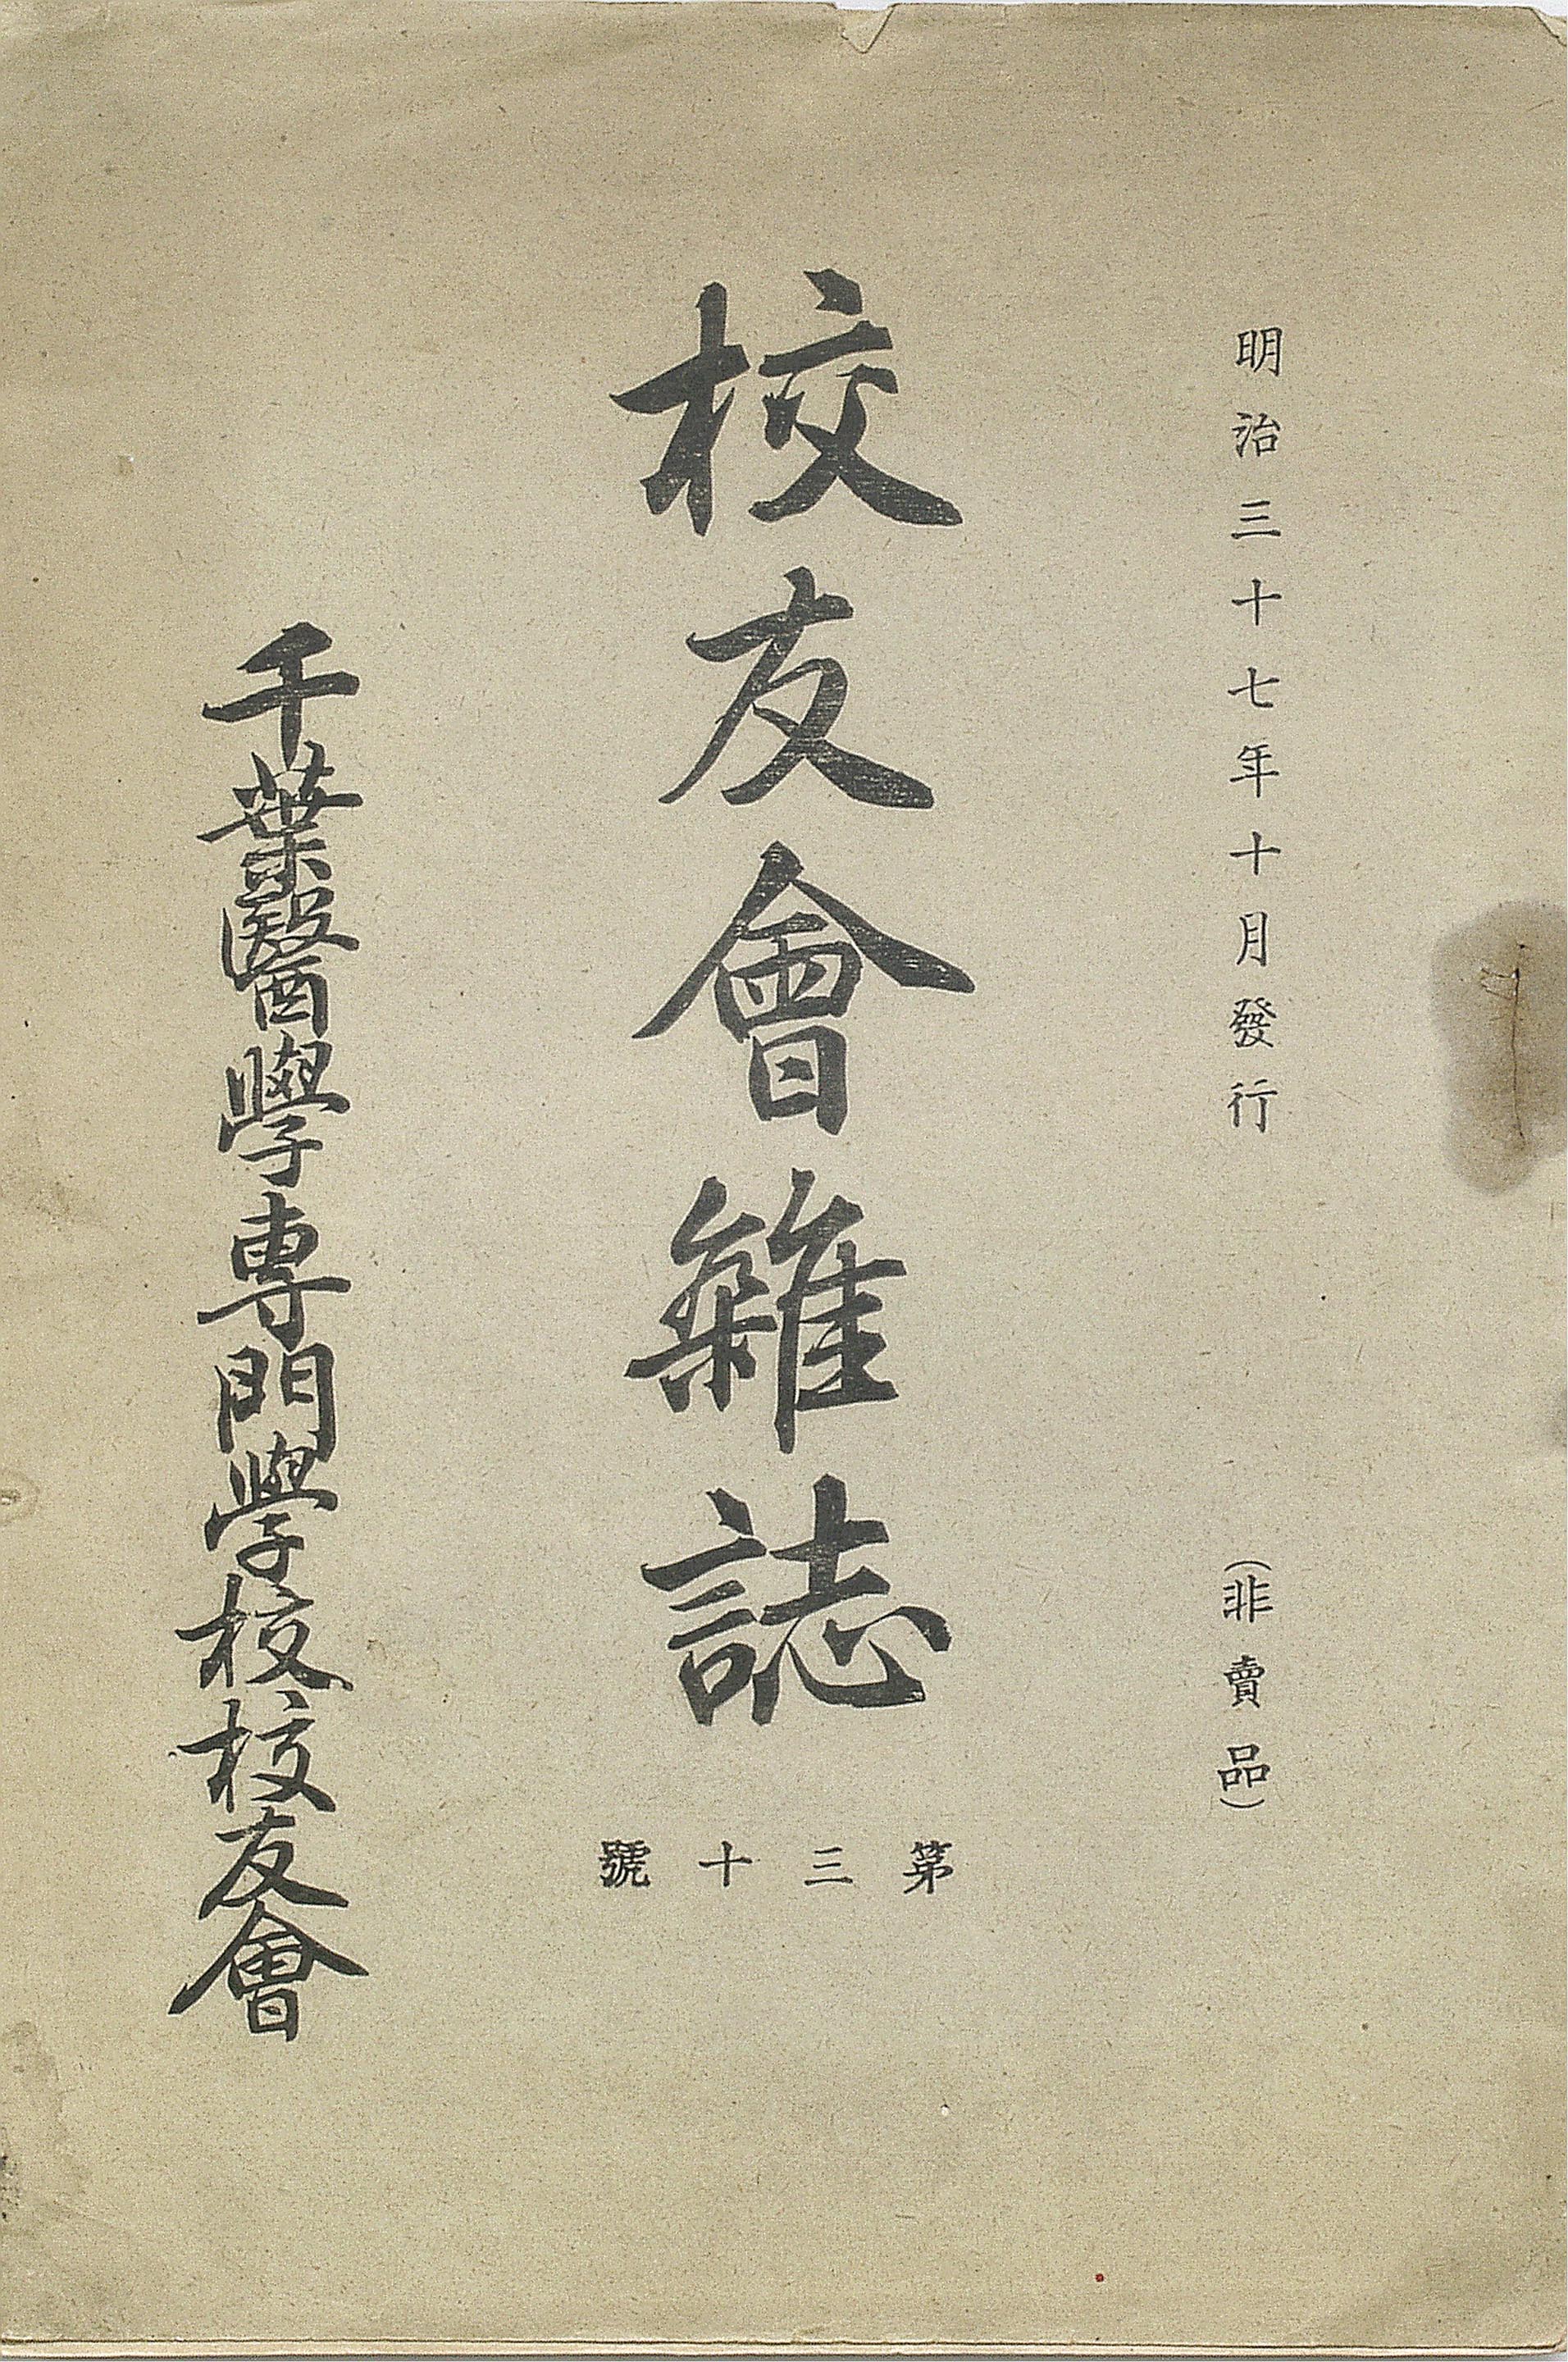 明治三十七年十月發行
(非賣品)
校友會雜誌
第三十號
千葉醫學專門學校校友會